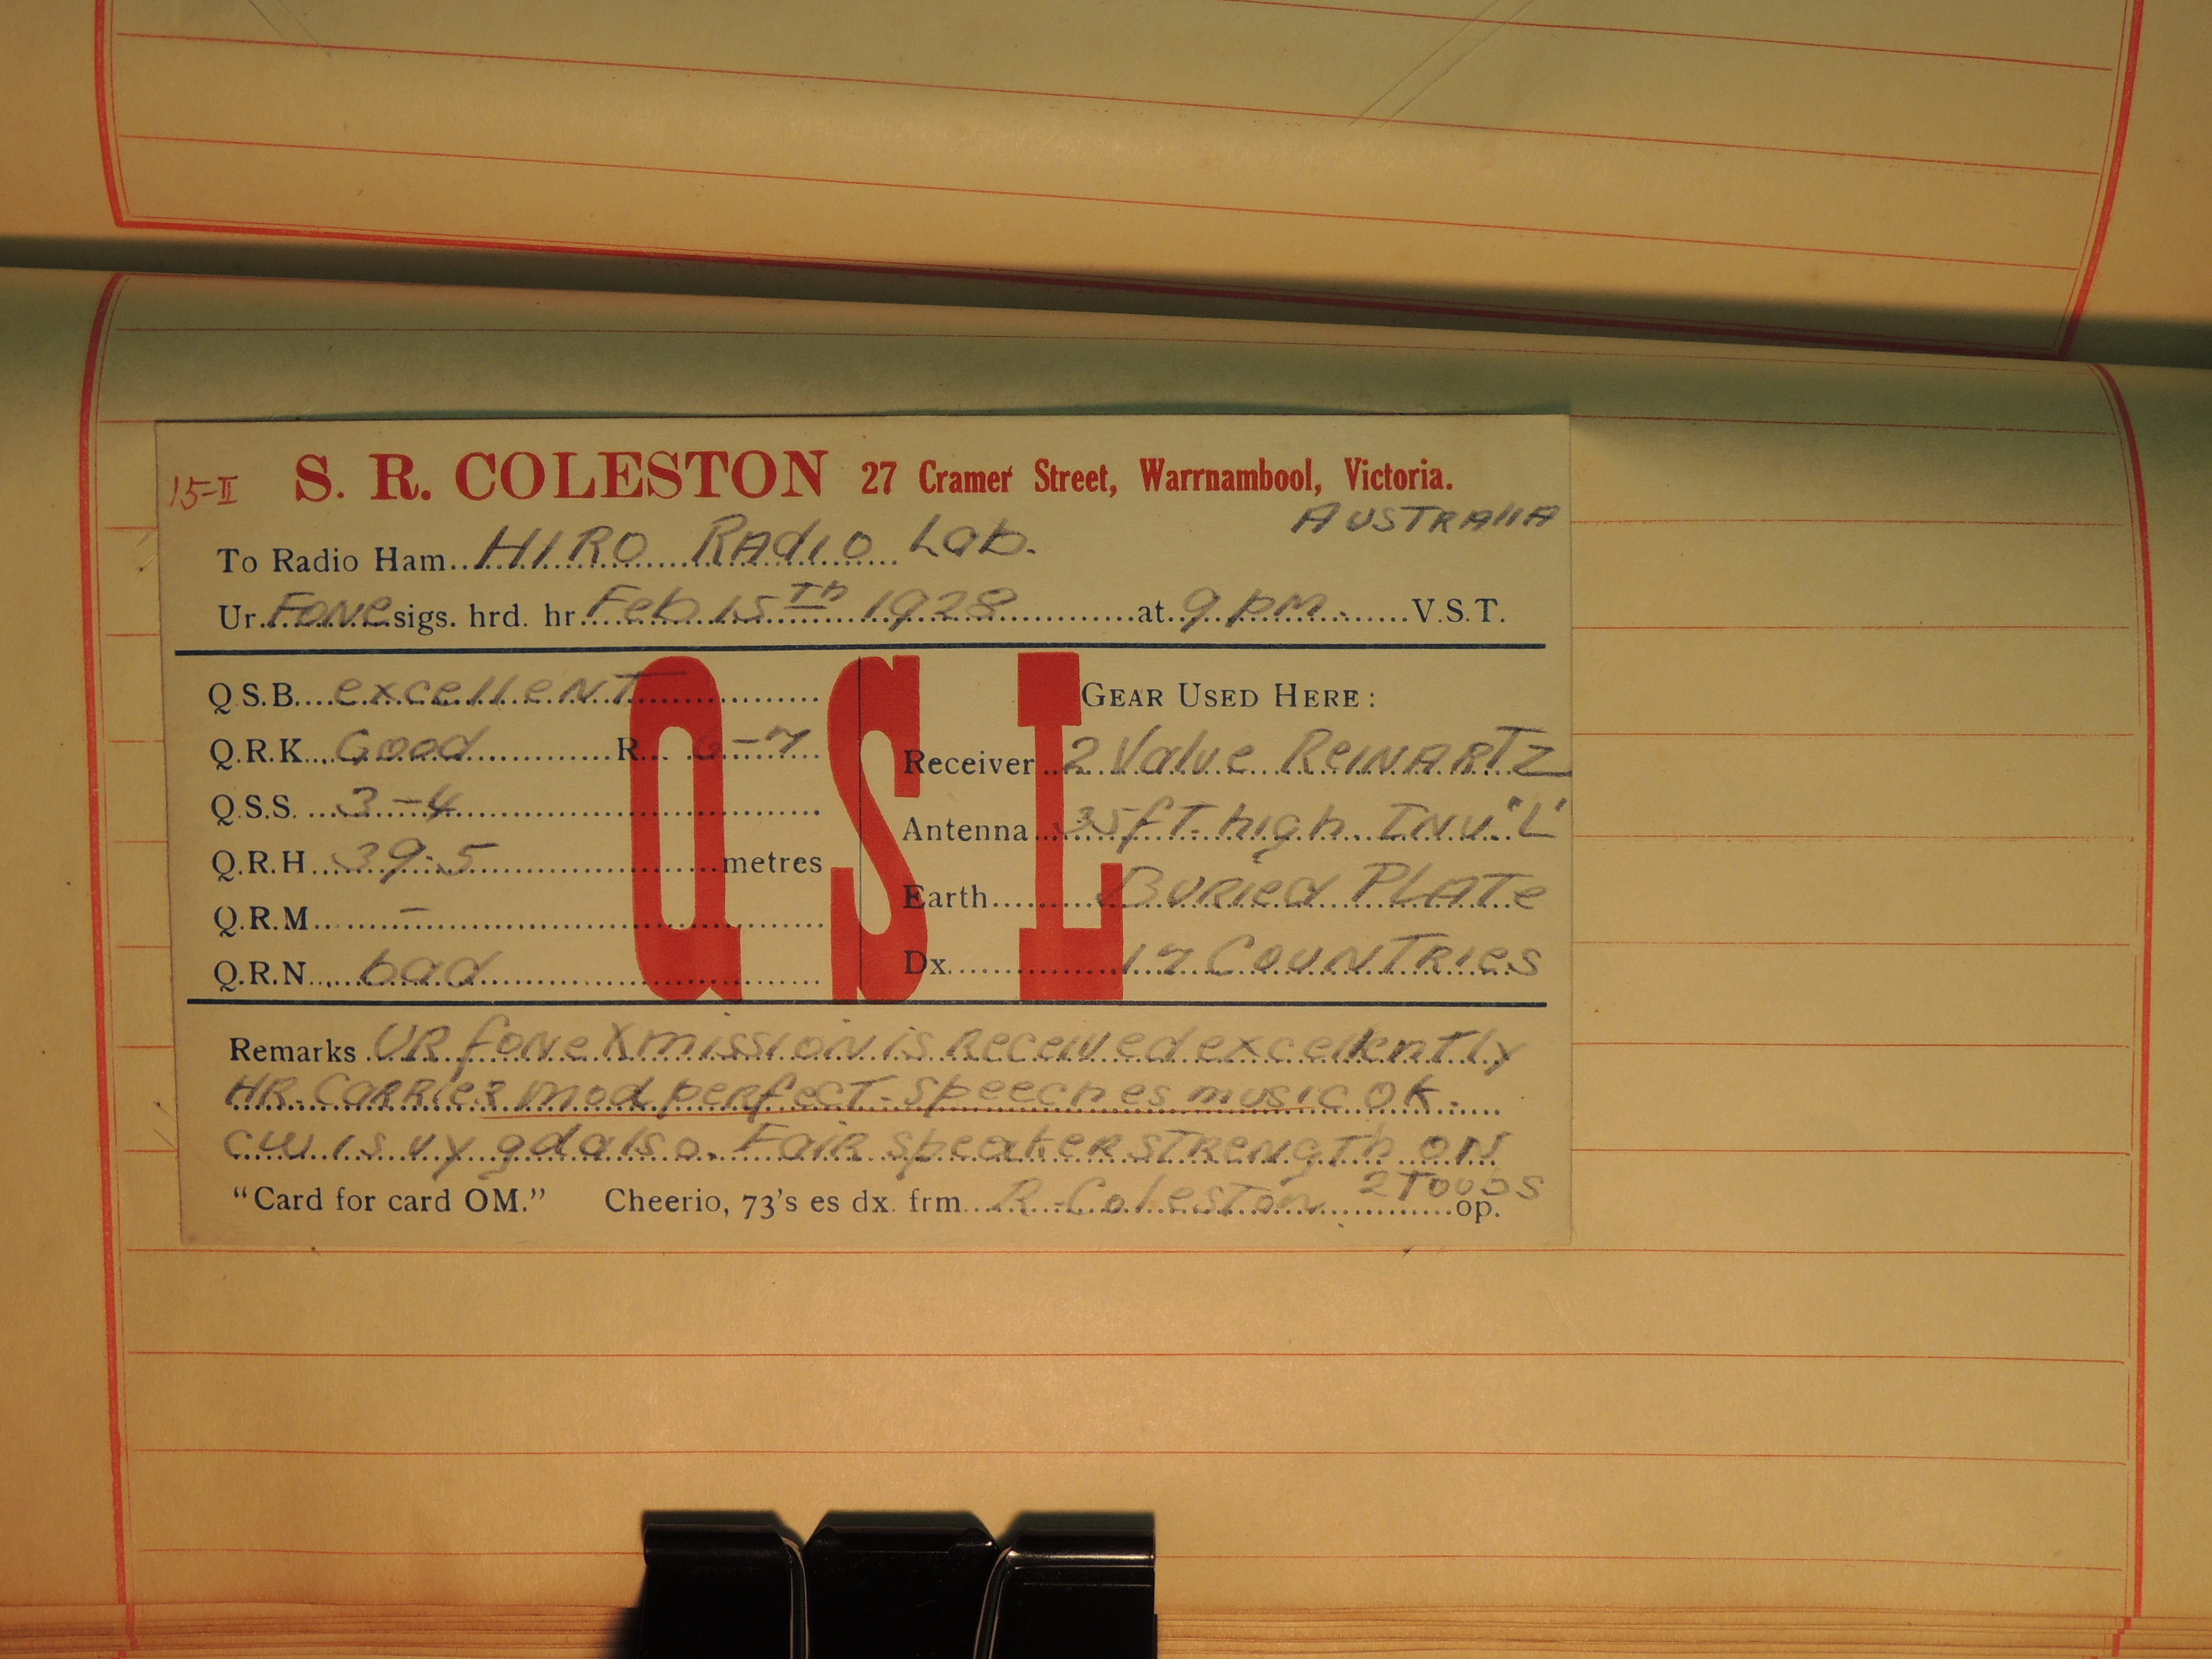 15-II S. R. COLESTON 27 Cramer Street, Warrnambool, Victoria.
AUSTRALIA
To Radio Ham...HIRO RADIO LAB.
Ur.FONE sigs. hrd. hr. Feb 15Th 1928 at 9 pm. V.S.T.
QSL
Q.S.B. excellenT
Q.R.K. Good R -7
Q.S.S. 3-4
Q.R.H. 39.5 metres
Q.R.M. -
Q.R.N. bad
GEAR USED HERE:
Receiver 2 Valve ReINARTZ
Antenna 35fT. high Inv. "L"
Earth BURied PLATe
Dx. 17 COUNTRIES
Remarks UR fone Xmission is Received excellently
HR. CARRIER mod perfecT. speech es music OK.
CW is vy gd also. FAIR speaker sTRengTh on
2 Toobs
"Card for card OM." Cheerio, 73's es dx. frm R. ColesTon op.